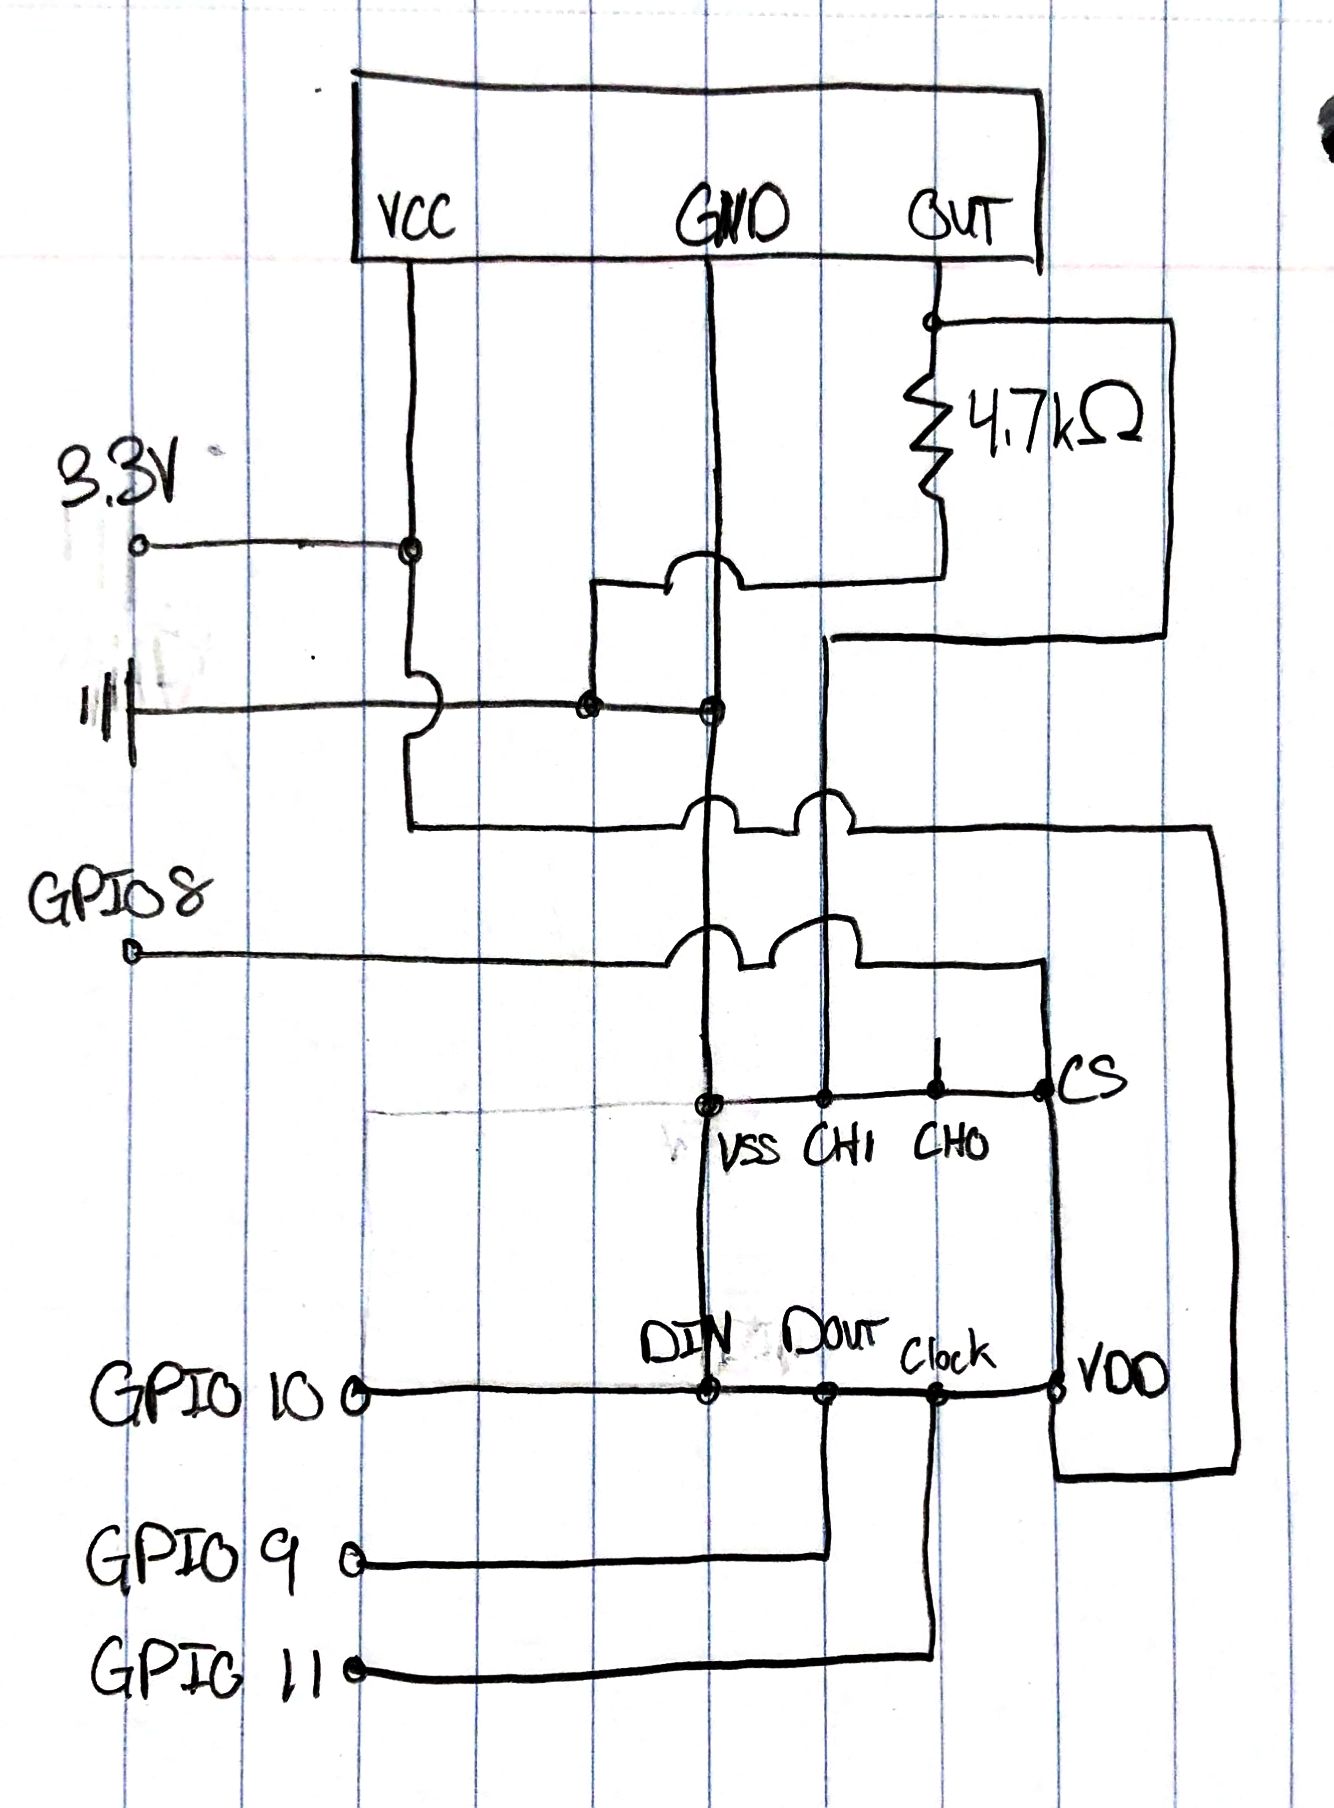 VCC GND OUT
4.7kΩ
3.3V
GPIO8
CS
VSS CH1 CH0
DIN DOUT Clock
VDD
GPIO 10
GPIO 9
GPIO 11